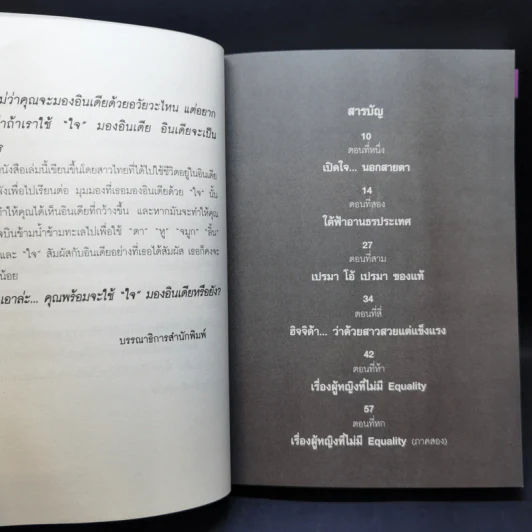 ไม่ว่าคุณจะมองอินเดียด้วยอวัยวะไหน แต่อยาก
ถ้าเราใช้ "ใจ" มองอินเดีย อินเดียจะเป็น
?
หนังสือเล่มนี้เขียนขึ้นโดยสาวไทยที่ได้ไปใช้ชีวิตอยู่ในอินเดีย
เพื่อไปเรียนต่อ มุมมองที่เธอมองอินเดียด้วย "ใจ" นั้น
ทำให้คุณได้เห็นอินเดียที่กว้างขึ้น และหากมันจะทำให้คุณ
บินข้ามน้ำข้ามทะเลไปเพื่อใช้ "ตา" "หู" "จมูก" "ลิ้น"
และ "ใจ" สัมผัสกับอินเดียอย่างที่เธอได้สัมผัส เธอก็คงจะ
น้อย
เอาล่ะ... คุณพร้อมจะใช้ "ใจ" มองอินเดียหรือยัง?
บรรณาธิการสำนักพิมพ์
สารบัญ
10
ตอนที่หนึ่ง
เปิดใจ... นอกสายตา
14
ตอนที่สอง
ใต้ฟ้าอานธรประเทศ
27
ตอนที่สาม
เปรมา โอ้ เปรมา ของแท้
34
ตอนที่สี่
ฮิจจิด้า... ว่าด้วยสาวสวยแต่แข็งแรง
42
ตอนที่ห้า
เรื่องผู้หญิงที่ไม่มี Equality
57
ตอนที่หก
เรื่องผู้หญิงที่ไม่มี Equality (ภาคสอง)